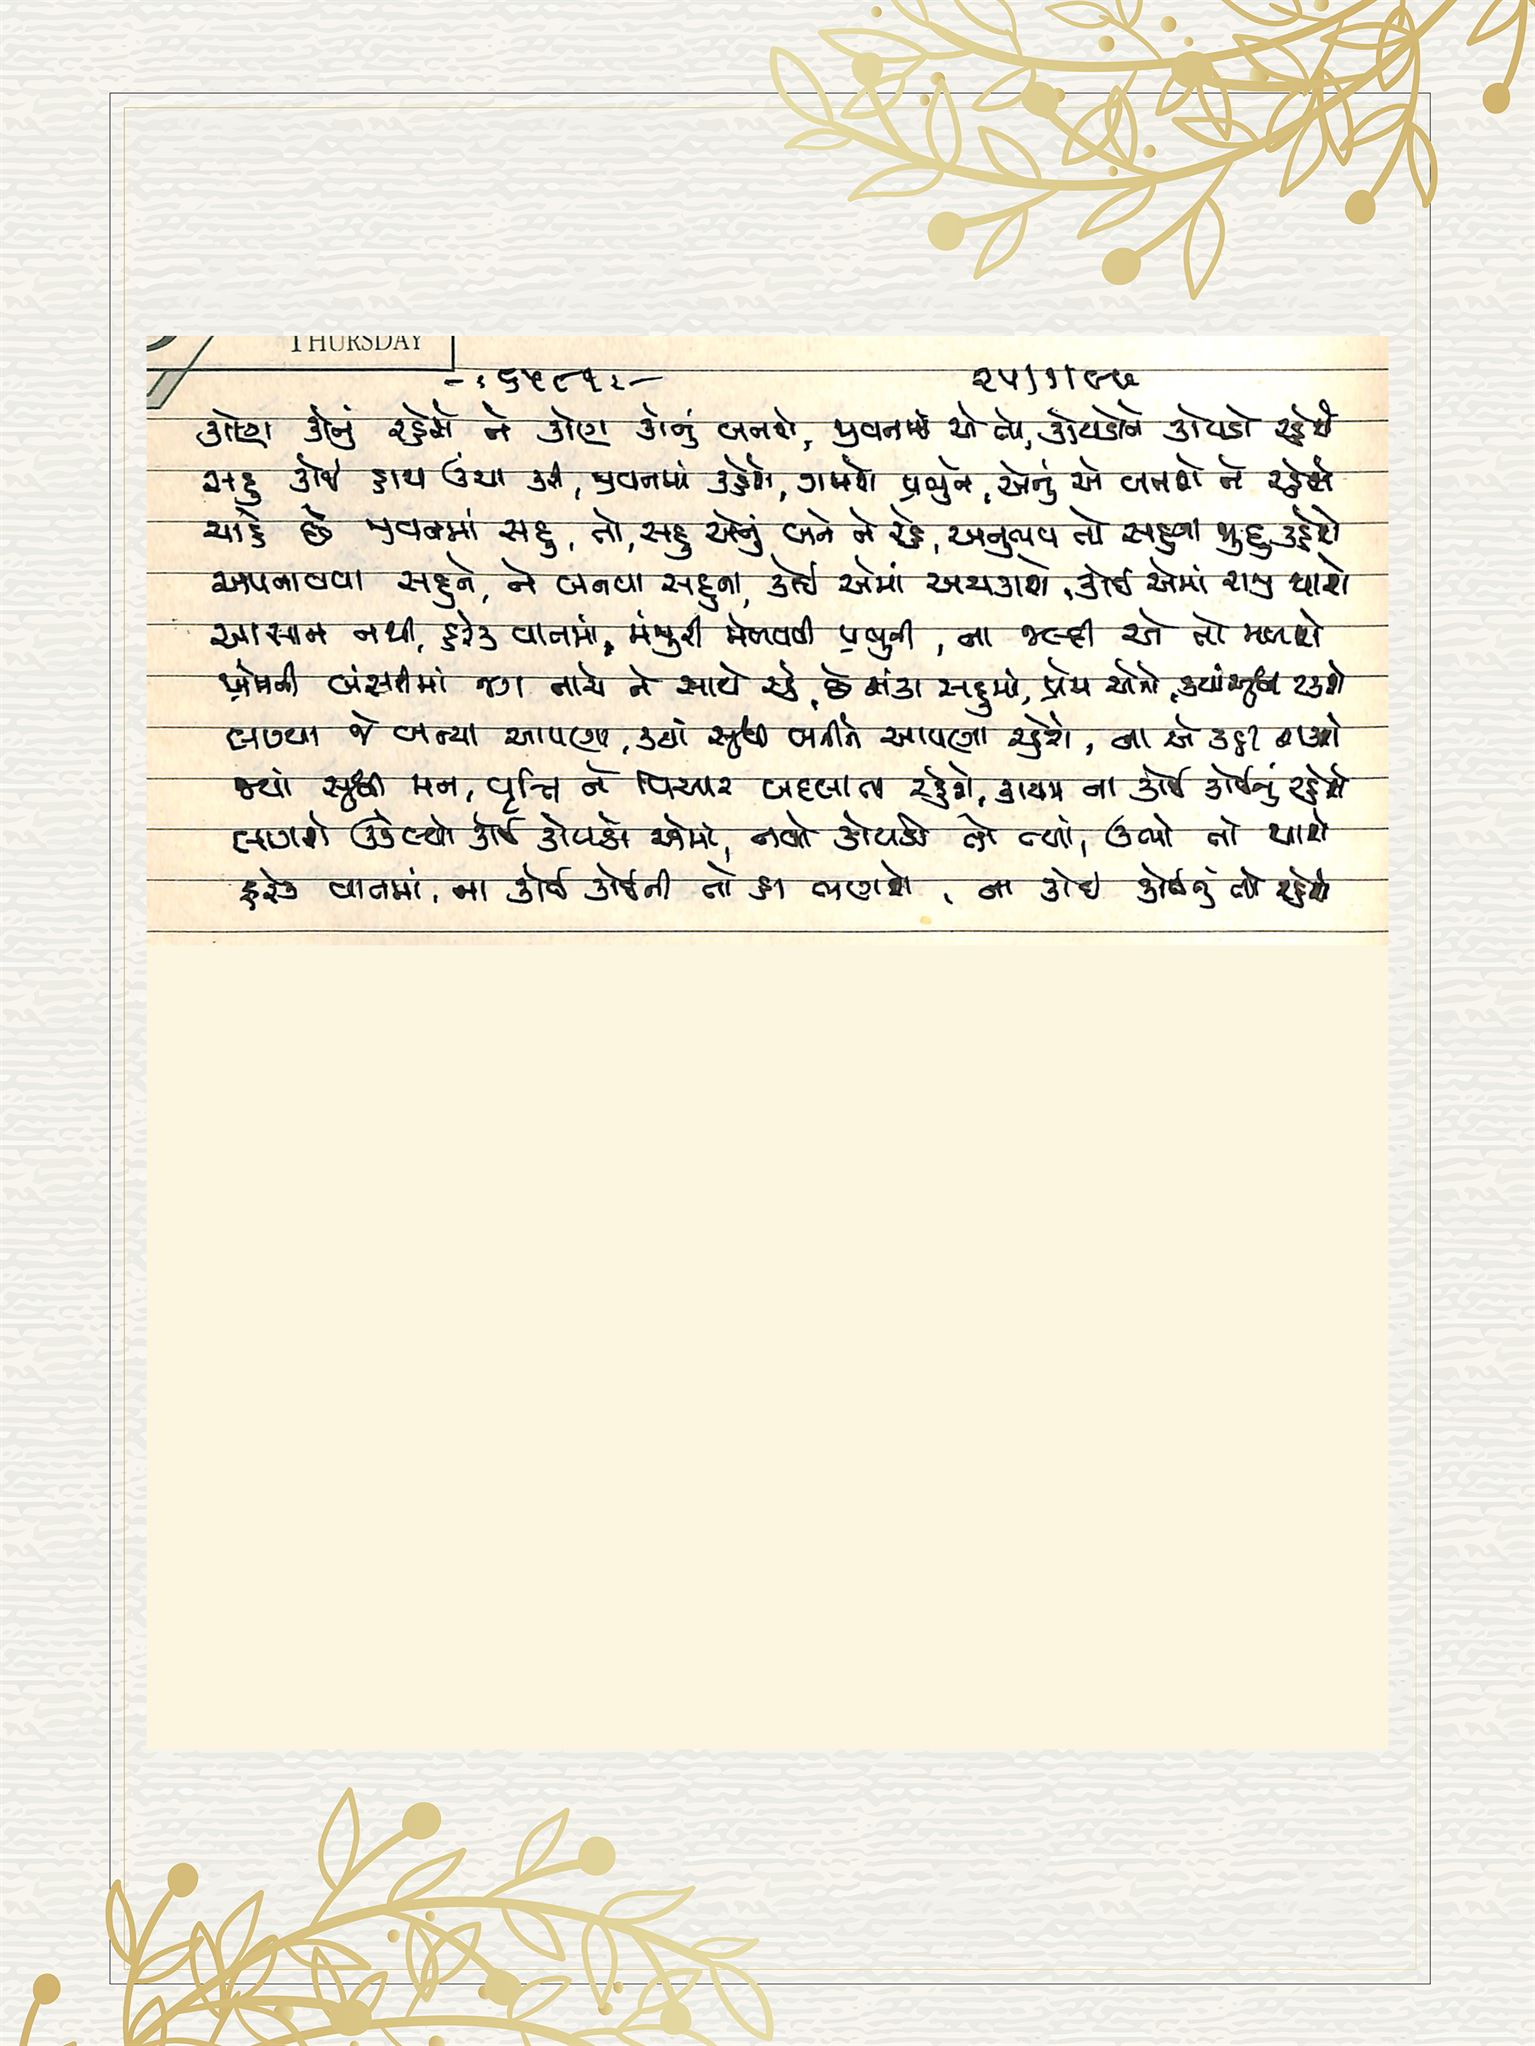 THURSDAY
-: ૬૫૯૧ :- ૨૫/૧/૯૭
કોણ કોનું રહેશે ને કોણ કોનું બનશે, જીવનમાં એ તો, કોયડોને કોયડો રહેશે
સહુ કોઈ હાથ ઉંચા કરી, જીવનમાં કહેશે, ગમશે પ્રભુને, એનું એ બનશે ને રહેશે
ચાહે છે જીવનમાં સહુ, તો, સહુ એનું બને ને રહે, અનુભવ તો સહુના જુદુ કહેશે
અપનાવવા સહુને, ને બનવા સહુના, કોઈ એમાં અચકાશે, કોઈ એમાં રાજી થાશે
આસાન નથી, હરેક વાતમાં, મંજુરી મેળવવી પ્રભુની, ના જલ્દી એ તો મળશે
પ્રેમની બંસરીમાં જગ નાચે ને સાથે રહે, છે શંકા સહુમાં, પ્રેમ એનો, ક્યાં સુધી ટકશે
લાગ્યા જે બન્યા આપણા, ક્યાં સુધી બનીને આપણા રહેશે, ના એ કહી શકાશે
જ્યાં સુધી મન, વૃત્તિ ને વિચાર બદલાતા રહેશે, કાયમ ના કોઈ કોઈનું રહેશે
લાગશે ઉકેલ્યો કોઈ કોયડો એમાં, નવો કોયડો તો ત્યાં, ઉભો તો થાશે
હરેક વાતમાં, ના કોઈ કોઈની તો હા ભણશે, ના કોઈ કોઈનું તો રહેશે